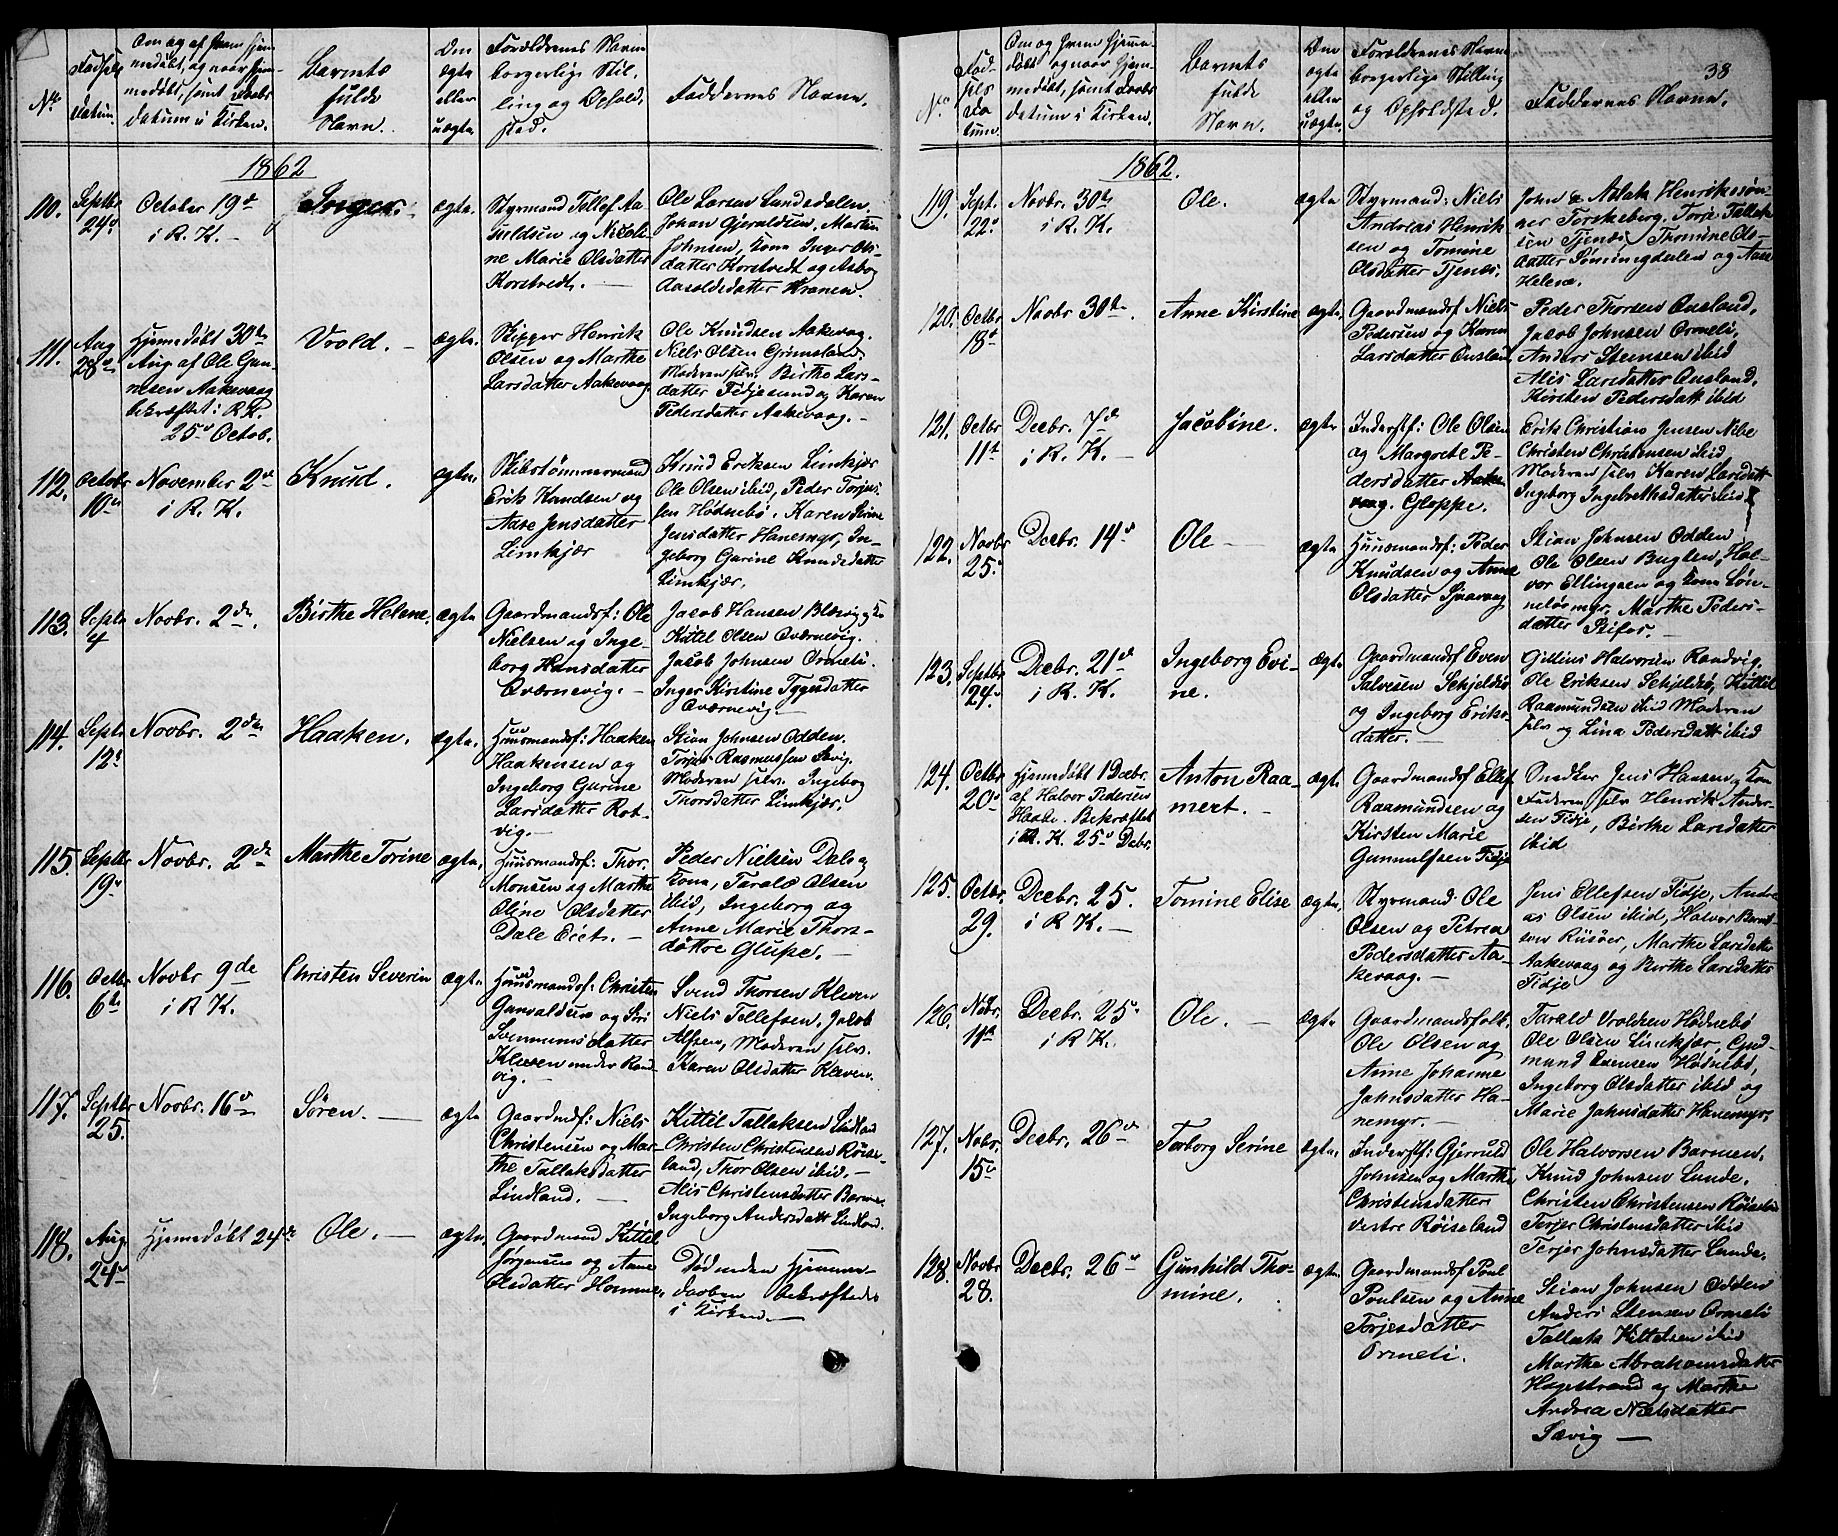 No
Fødsels
datum.
Om og af hvem hjem-
medøbt, og naar hjem-
medøbt, samt Daabs
datum i Kirken.
Barnets
fulde
Navn.
Om
ægte
eller
uægte
Forældrenes Navn
borgerlige Stil-
ling og Ophold-
sted.
Faddernes Navne.
1862
110.
Septbr
24de
October 19de
i R. K.
Inger.
ægte.
Styrmand Tellef Aa-
suldsen og Nicoli-
ne Marie Olsdatter
Korstvedt.
Ole Larsen Lundsdalen
Johan Gjeruldsen, Morten
Johnsen, kone Inger Ols-
datter Korstvedt og Asborg
Aasoldsdatter Kranen.
111.
Aug
28de
Hjemmedøbt 30te
Aug af Ole Gun-
nesen Aakevaag
bekræftet i R. K.
25de Octob.
Vrold.
ægte.
Skipper Henrik
Olsen og Marthe
Larsdatter Aakevaag
Ole Knudsen Aakevaag
Niels Olsen Grimsland
Moderen selv. Birthe Lars-
datter Fidjesund og Karen
Pedersdatter Aakevaag.
112.
Octobr
10de
November 2de
i R. K.
Knud.
ægte.
Skibstømmermand
Erik Knudsen og
Aase Jensdatter
Limkjær
Knud Eriksen Limkjær
Ole Olsen ibid, Peder Torjus-
sen Hødnebø, Karen Serine
Jensdatter Hanemyr, In-
geborg Gurine Knudsdatter
Limkjær.
113.
Septbr
4
Novbr. 2de.
Birthe Helene.
ægte
Gaardmandsf: Ole
Nielsen og Inge-
borg Hansdatter
Qværnevig.
Jacob Hansen
Kittil Olsen Qværnevig.
Jacob Johnsen Ormeli.
Inger Kirstine Tygesdatter
Qværnevig.
114.
Septbr
12te
Novbr. 2de
Haaken.
ægte.
Huusmandsf: Haaken
Haakensen og
Ingeborg Gurine
Larsdatter Rot-
vig.
Stian Johnsen Odden.
Torjus Rasmussen Sævig.
Moderen selv. Ingeborg
Thorsdatter Limkjær.
115.
Septbr
19de
Novbr. 2de
Marthe Torine
ægte.
Huusmandsf: Thor
Monsen og Marthe
Oline Olsdatter
Dale Eiet.
Peder Nielsen Dale og
kone, Tarald Olsen
ibid, Ingeborg og
Anne Marie Thors-
døttre Glupe.
116.
Octbr
6te
Novbr 9de
i R K.
Christen Severin
ægte.
Huusmandsf: Christen
Gunvaldsen og Siri
datter
Kleven under Rand-
vig.
Svend Thorsen Kleven
Niels Tellefsen, Jacob
Alfsen, Moderen selv.
Karen Olsdatter Kleven.
117.
Septbr
25.
Novbr. 16de
Søren.
ægte
Gaardmdsf: Niels
Christensen og Mar-
the Tallaksdatter
Lindland.
Kittil Tallaksen Lindland
Christen Christensen Røise-
land, Thor Olsen ibid.
Alis Christensdatter Barmen
Ingeborg Andersdatt Lindland.
118.
Aug
24de
Hjemmedøbt 24de
Ole.
ægte.
Gaardmand Kittel
Jørgensen og Anne
Olsdatter Homme.
Død inden Hjemme-
daaben bekræftedes
i Kirken.
38
No
Fød-
sels
Da-
tum.
Om og hvem hjemme-
døbt og naar hjem-
medøbt, samt Daabs
datum i Kirken.
Barnets
fulde
Navn.
Om
ægte
eller
uægte.
Forældrenes Navne
borgerlige Stilling
og Opholdsted.
Faddernes Navne.
1862.
119.
Sept.
22de
Novbr. 30te
i R. K.
Ole.
ægte
Styrmand: Niels
Andreas Henrik-
sen og Tomine
Olsdatter Tjenæs.
John & Aslak Henrikssøn-
ner Torskeberg. Torje Tallak-
sen Tjenæs, Thomine Ols-
datter Sømingdalen og Aase
Helene.
120.
Octbr
18de
Novbr 30te.
Anne Kirstine
ægte.
Gaardmandsf Niels
Pedersen og Karen
Larsdatter Ausland
Peder Thorsen Ausland,
Jacob Johnsen Ormeli,
Anders Stensen ibid
Alis Larsdatter Ausland,
Kirsten Pedersdatt ibid
121.
Octbr
11te
Decbr. 7de
i R. K.
Jacobine.
ægte
Inderstf: Ole Olsen
og Margrete Pe-
dersdatter Aake-
vaag. Gloppe.
Erik Christian Jensen Nibe
Christen Christensen ibid
Moderen selv Karen Larsdatt
Ingeborg Ingebrethsdatter ibid
122.
Novbr
25.
Decbr. 14de
Ole
ægte
Huusmandsf: Peder
Knudsen og Anne
Olsdatter Sjaavaag
Stian Johnsen Odden
Ole Olsen Buglen, Hal-
vor Ellingsen og kone Løn-
neløsmyr, Marthe Peders-
datter Stifos.
123.
Septbr
24de
Decbr. 21de
i R. K.
Ingeborg Evi-
ne.
ægte.
Gaardmandsf Even
Salvesen Schjeldsø
og Ingeborg Eriks-
datter.
Gillius Halvorsen Randvig,
Ole Eriksen Schjeldsø, Kittil
Raamundsen ibid Moderen
selv og Lina Pedersdatt ibid
124.
Octbr
20de
Hjemmedøbt 1 Decbr.
af Halvor Pedersen
Haabe. Bekræftet
i R. K. 25de Decbr.
Anton Raa-
mert.
ægte
Gaardmandsf Ellef
Raamundsen og
Kirsten Marie
Gunnulfsen Fidje
Snedker Jens Hansen, kone
Faderen selv Henrik Ander-
sen Fidje, Birthe Larsdatter
ibid
125.
Octbr.
29.
Decbr. 25.
i R. K.
Tomine Elise
ægte.
Styrmand: Ole
Olsen og Petrea
Pedersdatter Aa-
kevaag.
Jens Ellefsen Fidje, Andre-
as Olsen ibid, Halvor Bernt-
sen Riisøer, Marthe Larsdatter
Aakevaag og Birthe Larsdatter
Fidje
126.
Novbr.
11te
Decbr. 25de
i R K.
Ole.
ægte
Gaardmandsfolk
Ole Olsen og
Anne Johanne
Johnsdatter Ha-
nemyr.
Tarald Vroldsen Hødnebø
Ole Olsen Limkjær, Gud-
mund Evensen Hødnebø,
Ingeborg Olsdatter ibid og
Marie Johnsdatter Hanemyr.
127.
Novbr.
15de
Decbr. 26de
Torborg Serine
ægte.
Inderstf: Gjeruld
Johnsen og Marthe
Christensdatter
vestre Røiseland
Ole Halvorsen Barmen.
Knud Johnsen Lunde.
Christen Christensen Røiseland
Torjer Christensdatter ibid
Terjer Johnsdatter Lunde.
128.
Novbr
28.
Decbr. 26de
Gunhild Tho-
mine.
ægte.
Gaardmandsf Poul
Poulsen og Anne
Torjesdatter
Ormeli.
Stian Johnsen Odden
Anders Stensen Ormeli
Tallak Kittelsen ibid
Marthe Abrahamsdatter
Hagestrand og Marthe
Andrea Nielsdatter
Sævig